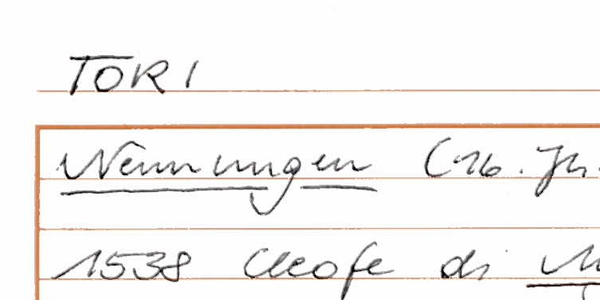 TORI
Nennungen (16. Jh.
1538 Cleofe di